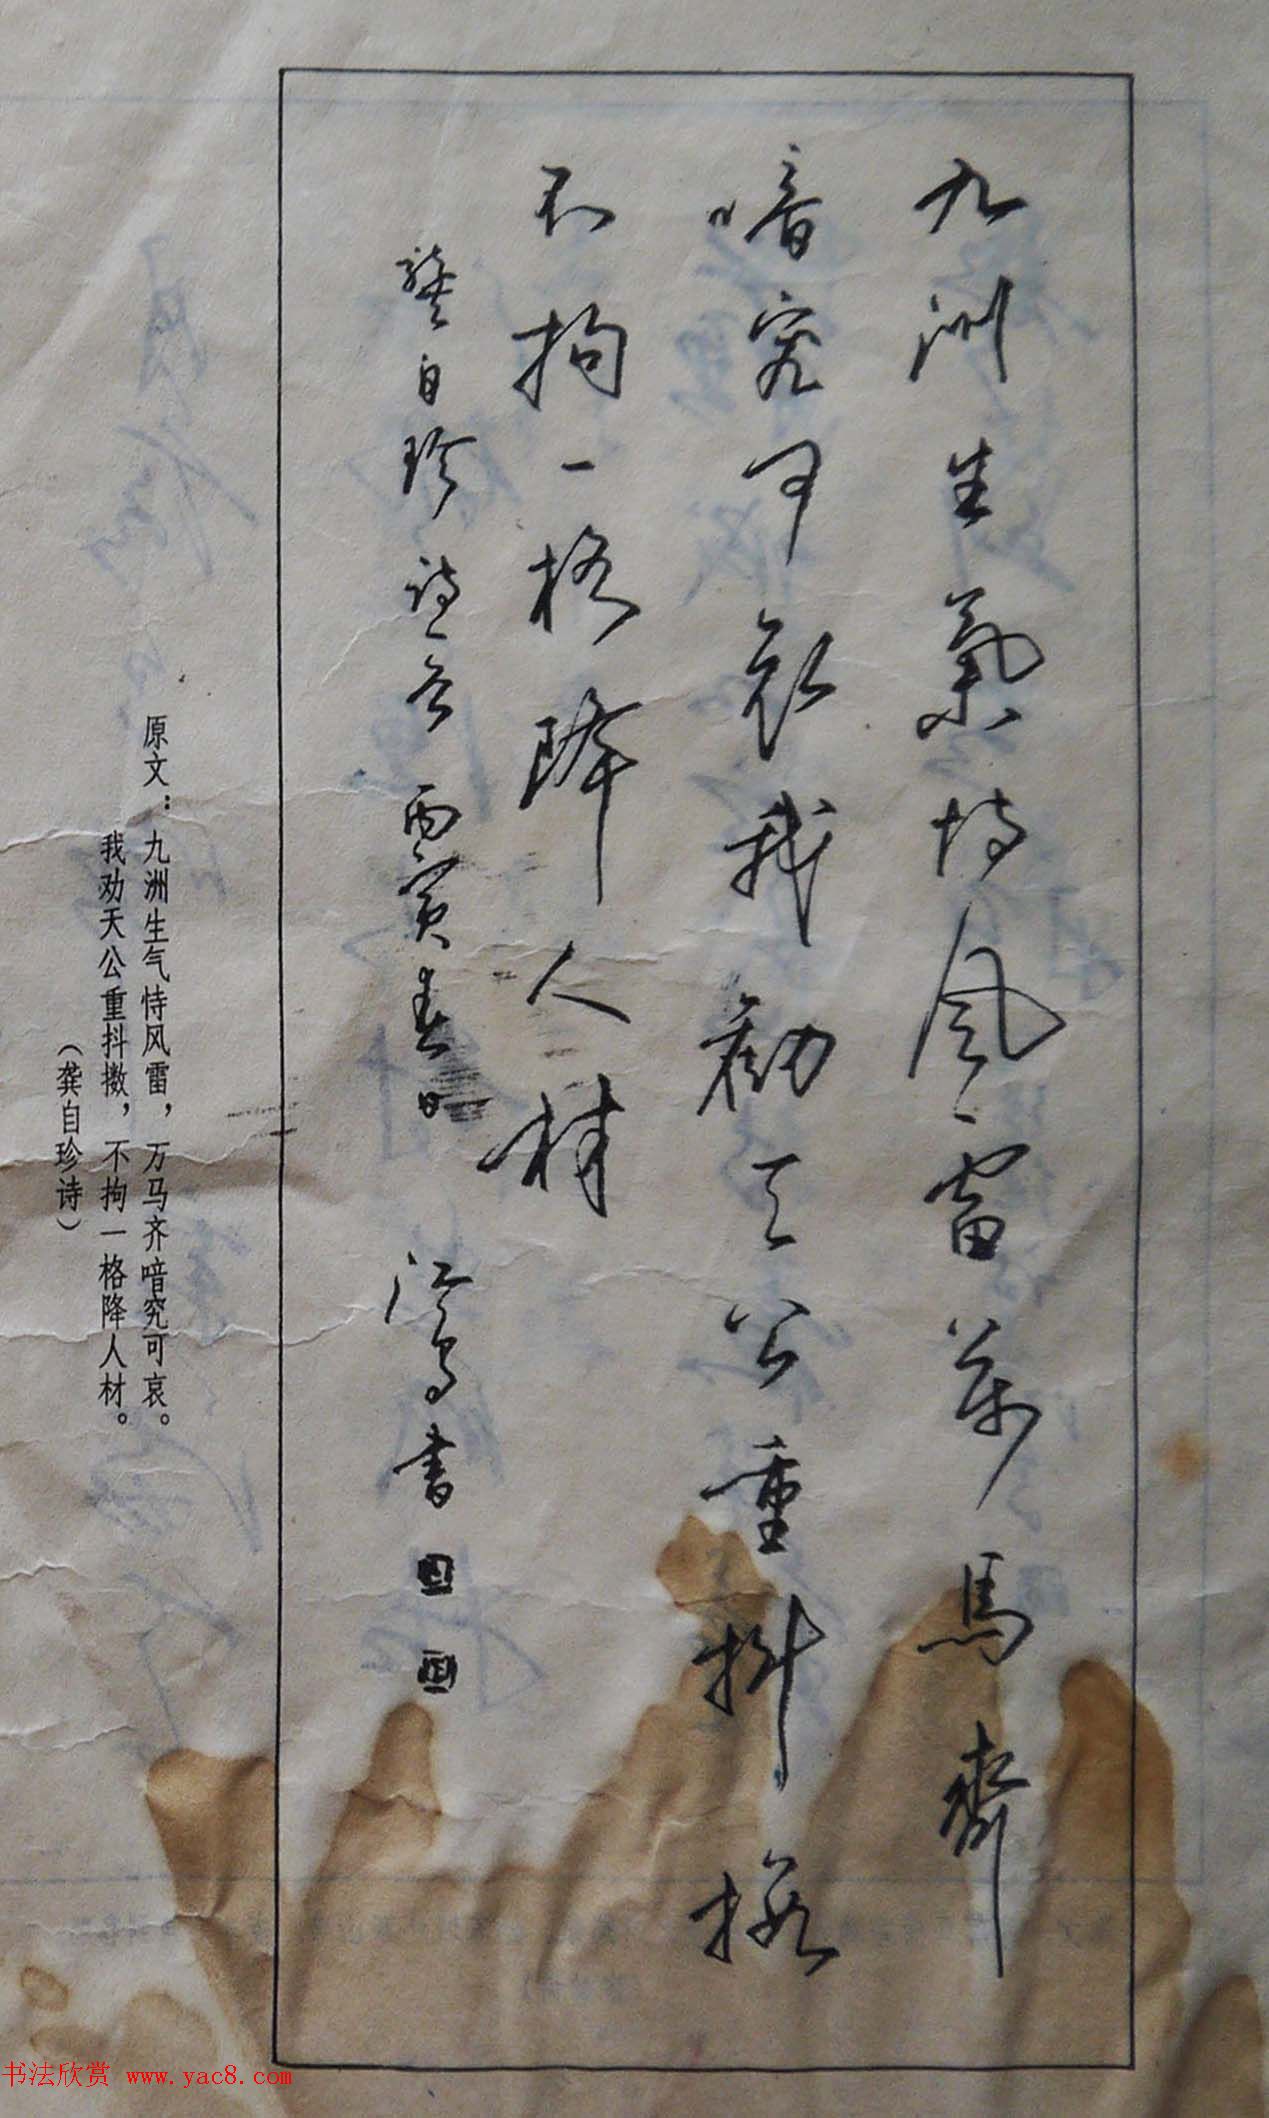 九洲生氣恃风雷萬馬齊
喑究可哀我勸天公重抖擞
不拘一格降人材
龔自珍诗一首 丙寅春日 江鸟書
原文：九洲生气恃风雷，万马齐喑究可哀。
我劝天公重抖擞，不拘一格降人材。
（龚自珍诗）
书法欣赏 www.yac8.com